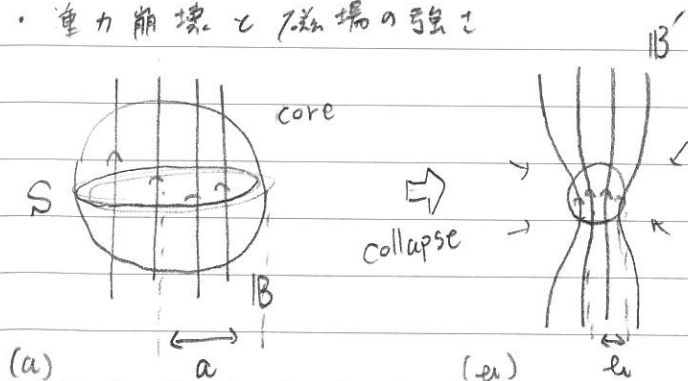 ・重力崩壊と磁場の強さ
B′
core
S
collapse
B
(a) a (b) b